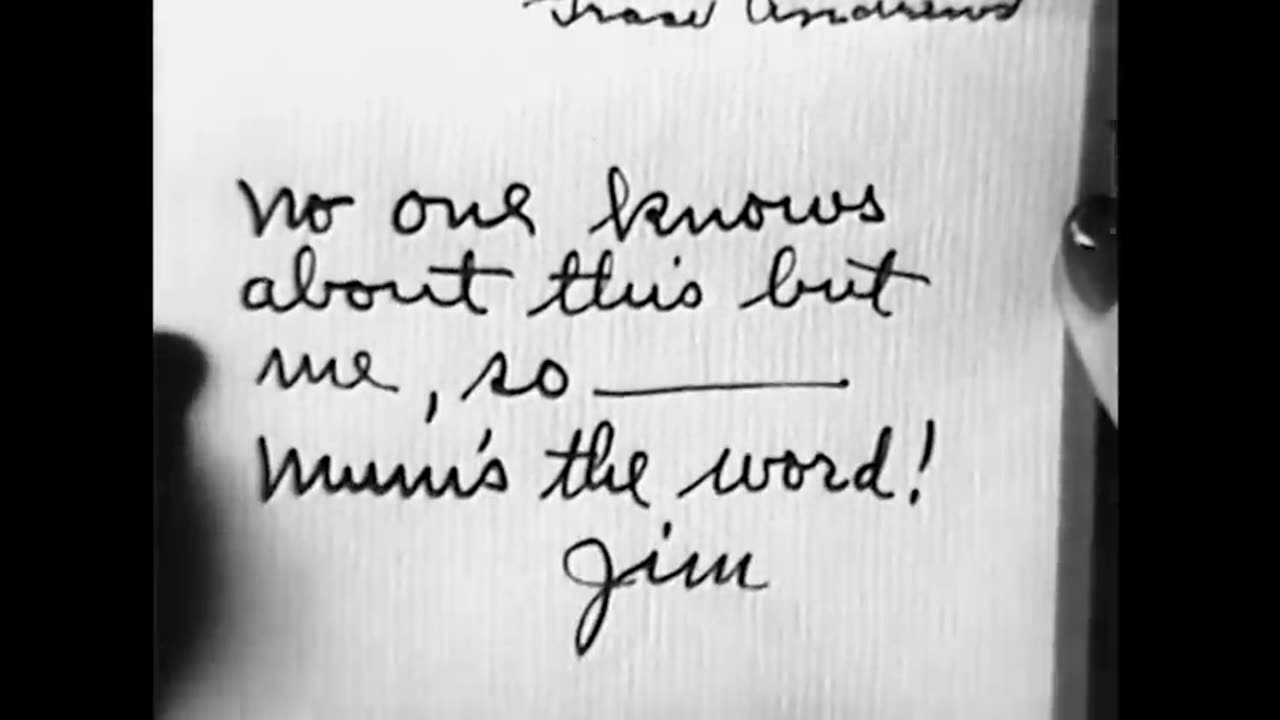 Andrews
No one knows
about this but
me, so ———
Mum's the word!
Jim